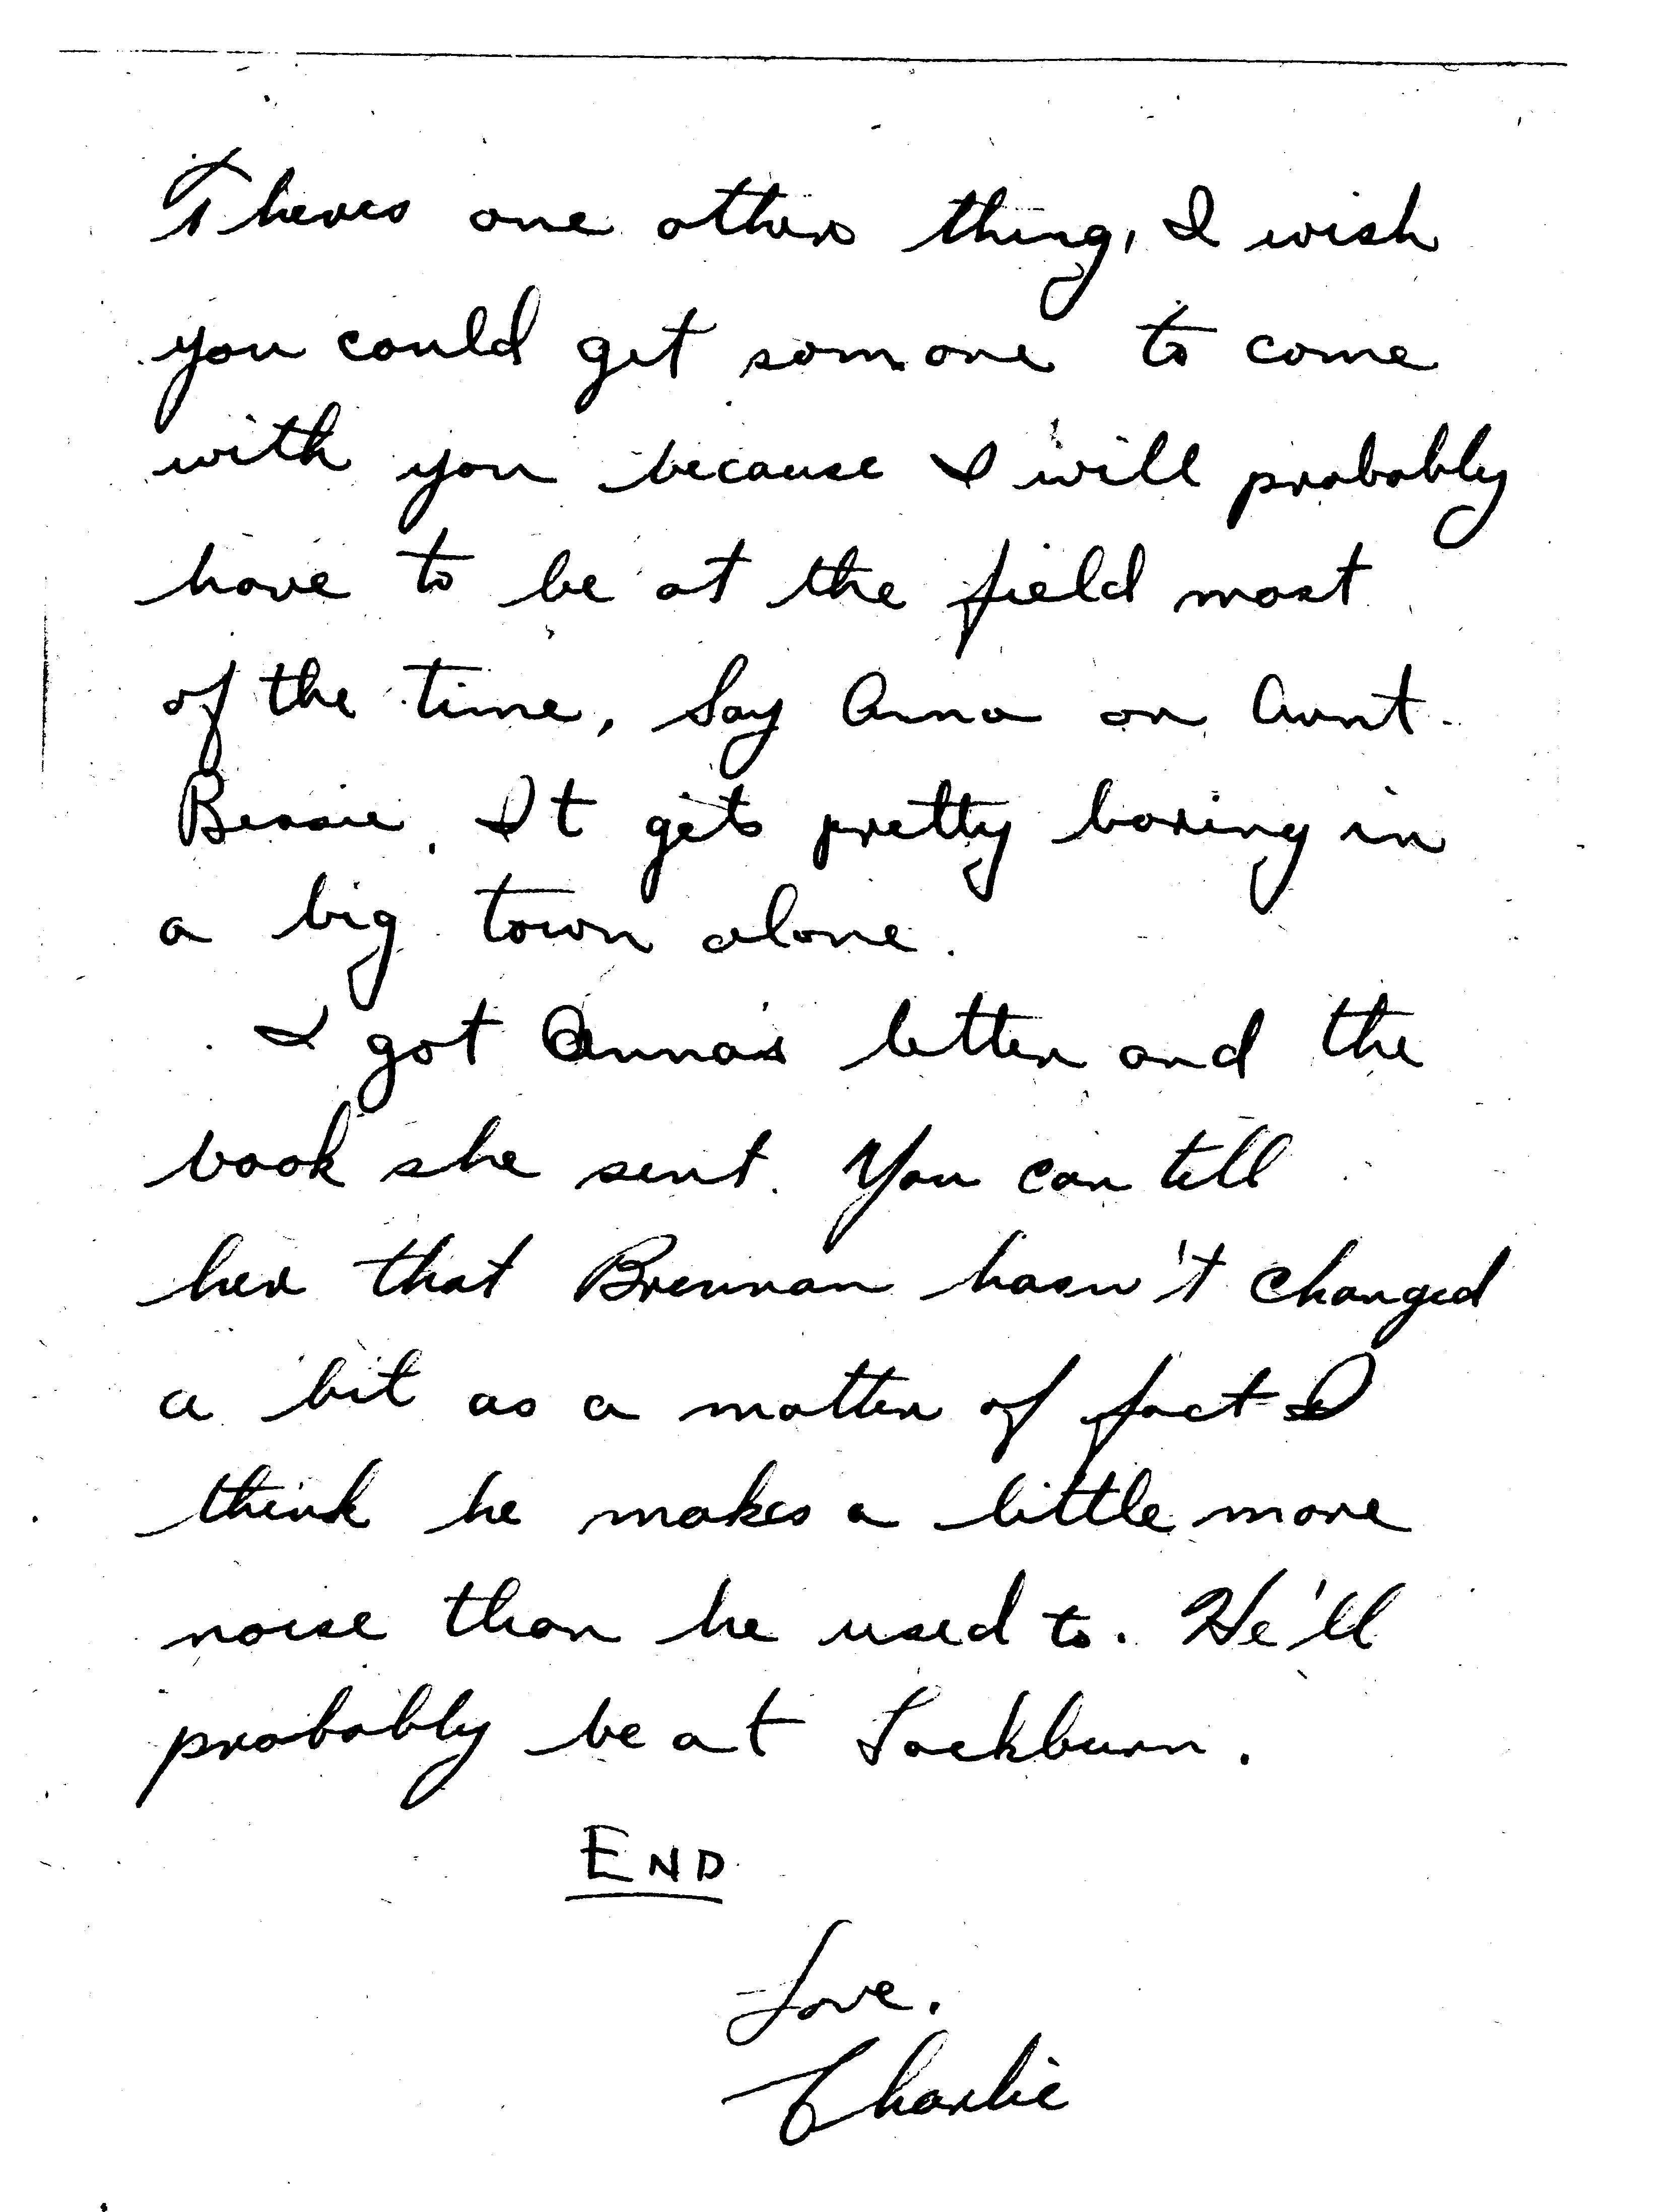 Theres one other thing, I wish
you could get somone to come
with you because I will probably
have to be at the field most
of the time, Say Anna or Aunt
Bessie. It gets pretty boring in
a big town alone.
I got Anna's letter and the
book she sent. You can tell
her that Brennan hasn't changed
a bit as a matter of fact I
think he makes a little more
noise than he used to. He'll
probably be at Lockburn.
END
Love,
Charlie